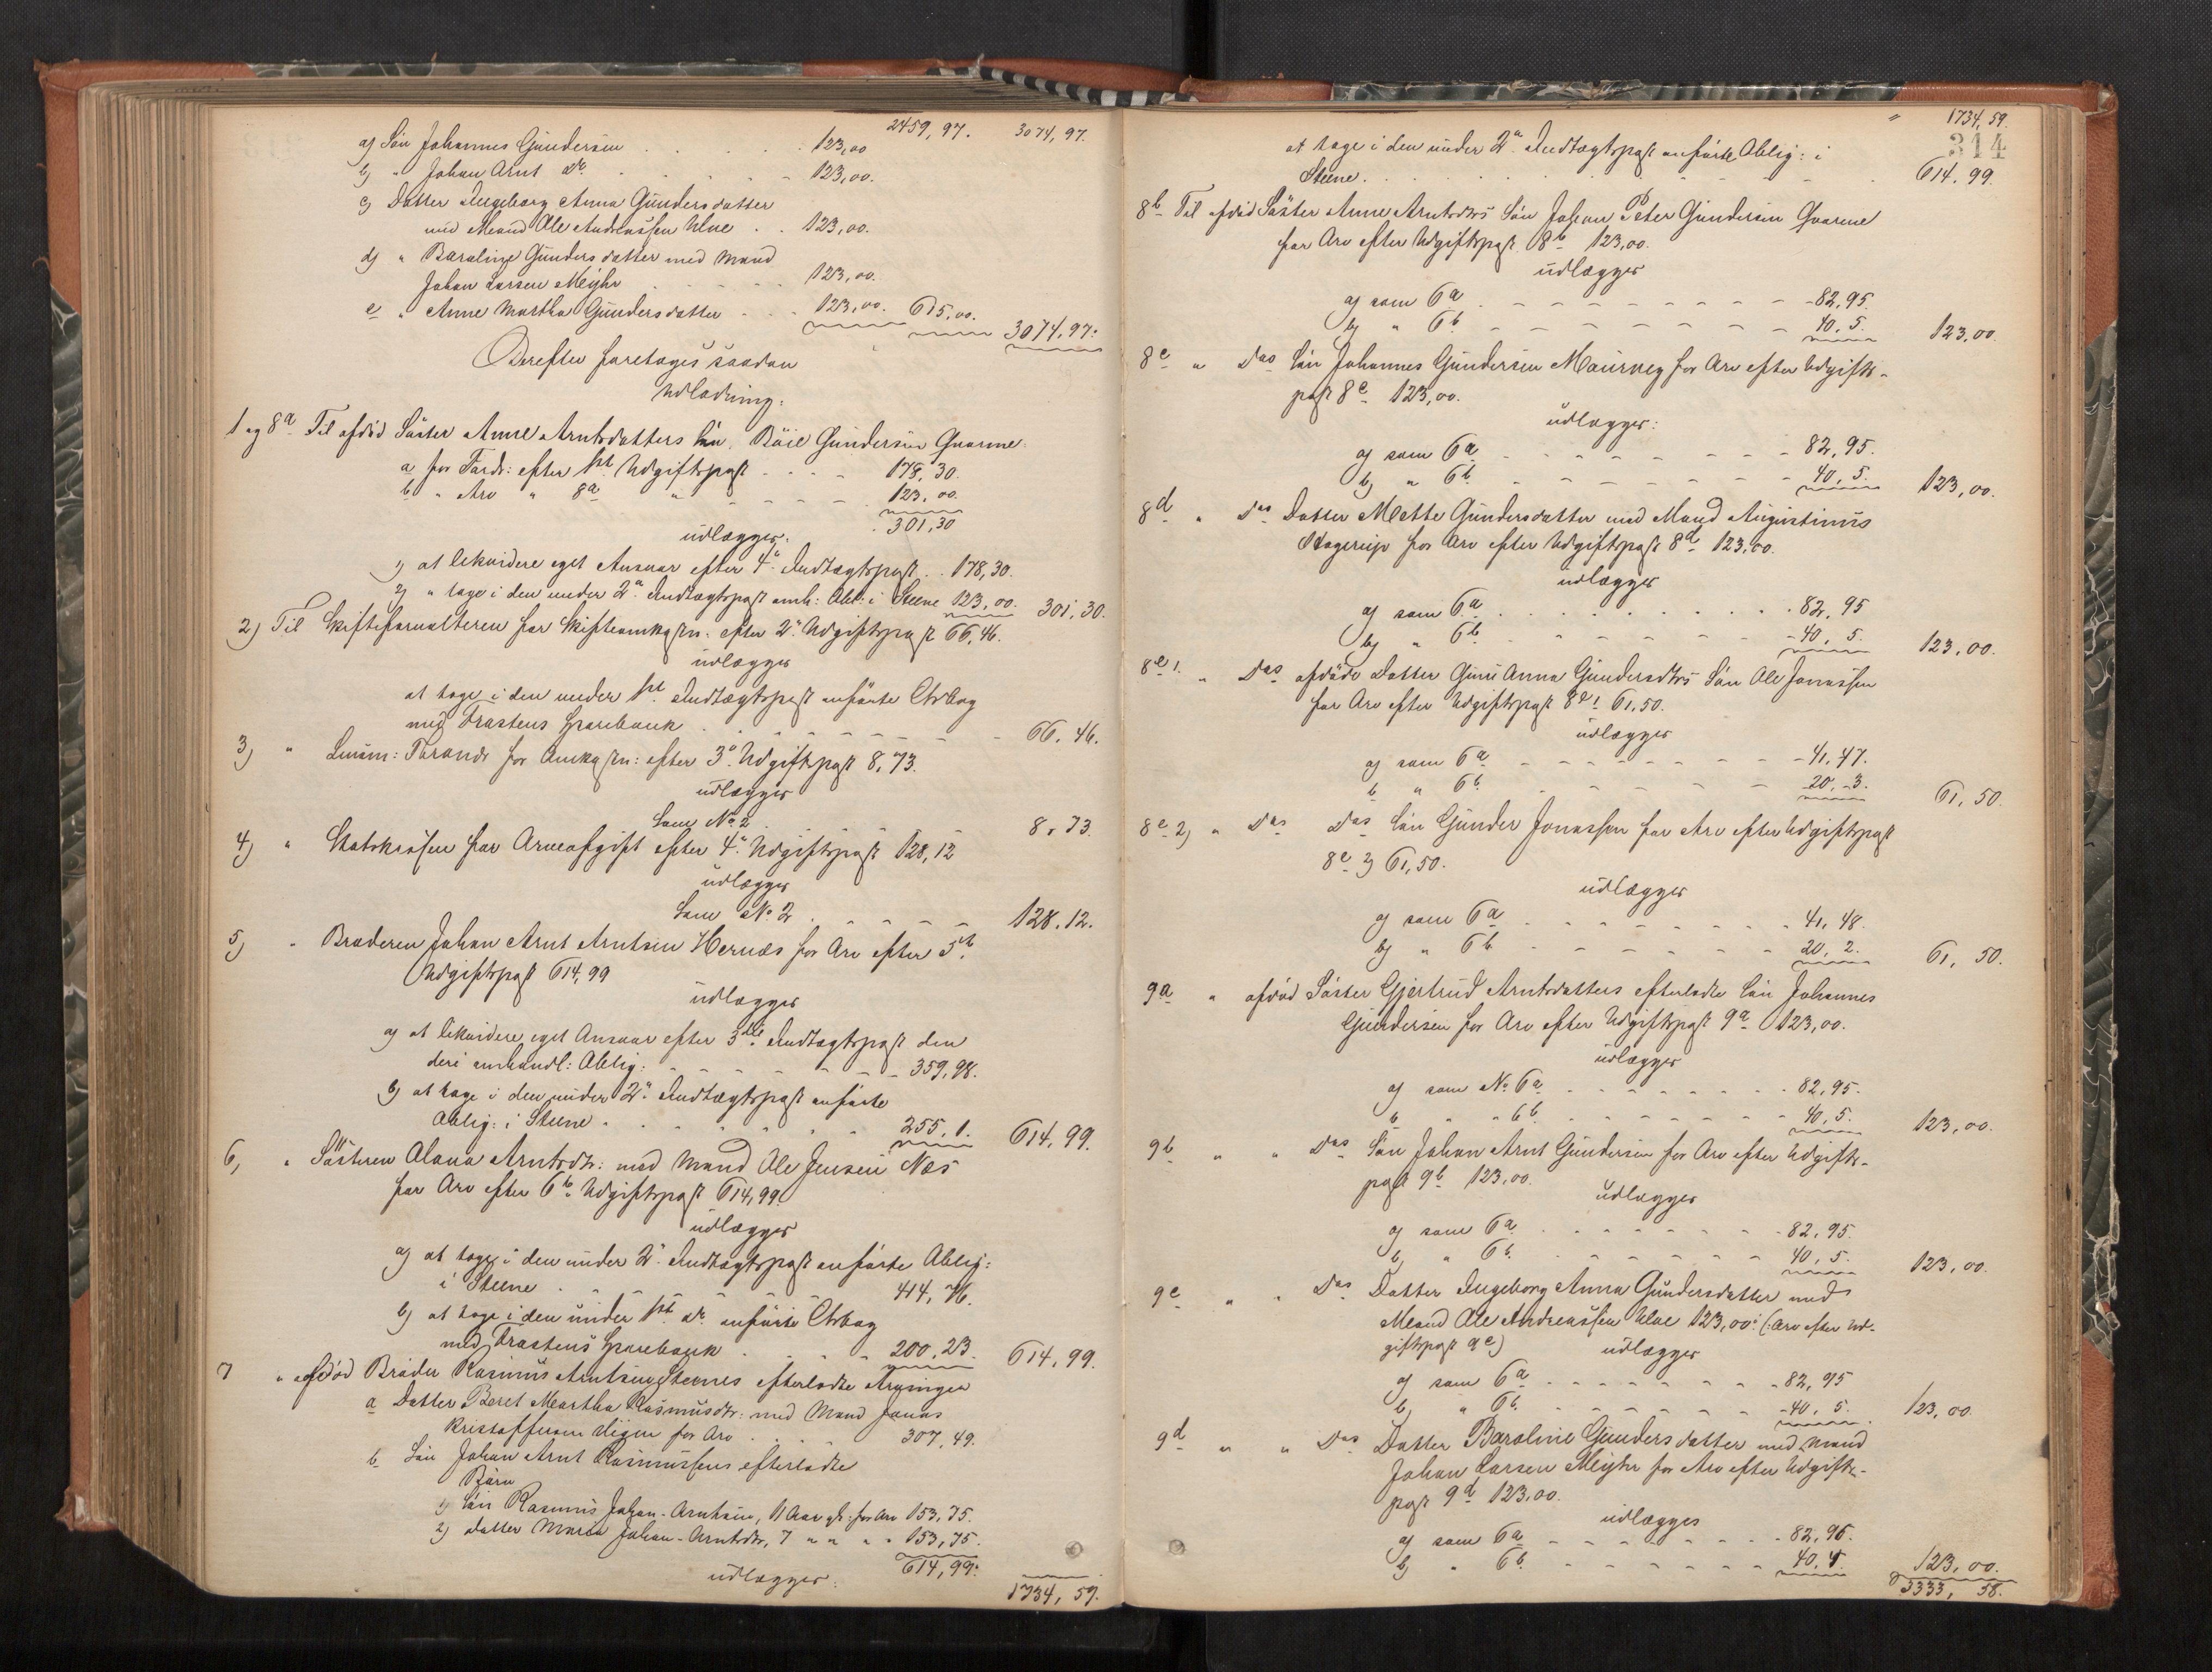 2459,97. 3074,97.
a) Søn Johannes Gundersen . . . . . 123,00
b) " Johan Arnt do. . . . . . 123,00.
c) Datter Ingeborg Anna Gundersdatter
med Mand Ole Andreassen Ulve . . 123,00.
d) " Beroline Gundersdatter med Mand
Johan Larsen Meyhr . . . . . 123,00.
e " Anne Martha Gundersdatter . . . 123,00. 615,00.
3074,97.
Derefter foretoges saadan
Udlodning:
1 og 8a Til afdød Søster Anne Arntsdatters Søn, Böie Gundersen Qvarme:
a for Fordr: efter 1ste Udgiftspost . . . . 178,30.
b " Arv " 8a " . . . . 123,00.
301,30
udlægges:
1) at likvidere eget Ansvar efter 4de Indtægtspost . . 178,30.
2) " tage i den under 2den Indtægtspost omh: Obl: i Steene 123,00. 301,30.
2) Til Skifteforvalteren for Skifteomkostn: efter 2den Udgiftspost 66,46.
udlægges
at tage i den under 1ste Indtægtspost anførte Ctrbog
med Frostens Sparebank . . . . . . . . 66,46.
3) " Lensm: Thrane for Omkostn: efter 3die Udgiftspost 8,73.
udlægges
Som No 2 8,73.
4) " Statskassen for Arveafgift efter 4de Udgiftspost 128,12
udlægges
Som No 2 . . . . . 128.12.
5) " Broderen Johan Arnt Arntsen Hernæs for Arv efter 5te
Udgiftspost 614,99
udlægges
a) at likvidere eget Ansvar efter 3die Indtægtspost den
deri omhandl: Oblig: . . . . . . . 359,98.
b) at tage i den under 2den Indtægtspost anførte
Oblig: i Steene . . . . . . . 255,1. 614,99.
6, " Søsteren Olava Arntsdtr: med Mand Ole Jensen Næs
for Arv efter 6te Udgiftspost 614,99.
udlægges
a) at tage i den under 2den Indtægtspost anførte Oblig:
i Steene . . . . . . 414,76.
b) at tage i den under 1ste do. anførte Ctrbog
med Frostens Sparebank . . . . 200,23. 614,99.
7 " afdød Broder Rasmus Arntsen Steenes efterladte Arvinger
a Datter Beret Martha Rasmusdtr: med Mand Jonas
Kristoffersen for Arv . . . . 307,49.
b Søn Johan Arnt Rasmussens efterladte
Børn
1) Søn Rasmus Johan-Arntsen, 11 Aar gl: for Arv 153,75.
2) Datter Maria Johan-Arntsdtr, 7 " " " " 153,75.
614,99.
udlægges:
1734,59.
" 1734,59.
314
at tage i den under 2den Indtægtspost anførte Oblig: i
Steene . . . . . . . . . 614,99.
8b Til afdød Søster Anne Arntsdtrs Søn Johan Peter Gundersen Qvarme
for Arv efter Udgiftspost 8b 123,00.
udlægges
a) som 6a . . . . . . . . 82,95.
b) " 6b . . . . . . . . 40,5. 123,00.
8c " Das Søn Johannes Gundersen Maurvey for Arv efter Udgifts-
post 8c 123,00.
udlægges:
a) som 6a . . . . . . . 82,95.
b) " 6b . . . . . . . 40,5. 123,00.
8d " Das Datter Mette Gundersdatter med Mand Augustinus
Hagerup for Arv efter Udgiftspost 8d 123,00.
udlægges
a) som 6a . . . . . . . . 82,95
b) " 6b . . . . . . . . 40,5. 123,00.
8e1. " Das afdøde Datter Guru Anna Gundersdtrs Søn Ole Jonassen
for Arv efter Udgiftspost 8e1 61,50.
udlægges
a) som 6a . . . . . . . . 41,47.
b " 6b . . . . . . . . 20,3. 61,50.
8e2) " Das Das Søn Gunder Jonassen for Arv efter Udgiftspost
8e2) 61,50.
udlægges
a) som 6a . . . . . . . . 41,48.
b) " 6b . . . . . . . . 20,2. 61,50.
9a " afdød Søster Gjertrud Arntsdatters efterladte Søn Johannes
Gundersen for Arv efter Udgiftspost 9a 123,00.
udlægges
a) som No 6a . . . . . . . . 82,95.
b " " 6b . . . . . . . . 40,5. 123,00.
9b " " Das Søn Johan Arnt Gundersen for Arv efter Udgifts-
post 9b 123,00.
udlægges
a) som 6a . . . . . . . 82,95.
b, " 6b . . . . . . . 40,5. 123,00.
9c " " Das Datter Ingeborg Anna Gundersdatter med
Mand Ole Andreassen Ulve 123,00: (: Arv efter Ud-
giftspost 9c) udlægges
a) som 6a . . . . . . . . 82,95
b, " 6b . . . . . . . . 40,5. 123,00.
9d " " Das Datter Beroline Gundersdatter med Mand
Johan Larsen Meyhr for Arv efter Udgifts-
post 9d 123,00.
udlægges
a) som 6a . . . . . . . . 82,96.
b) " 6b . . . . . . . . 40,4. 123,00.
3333,58.